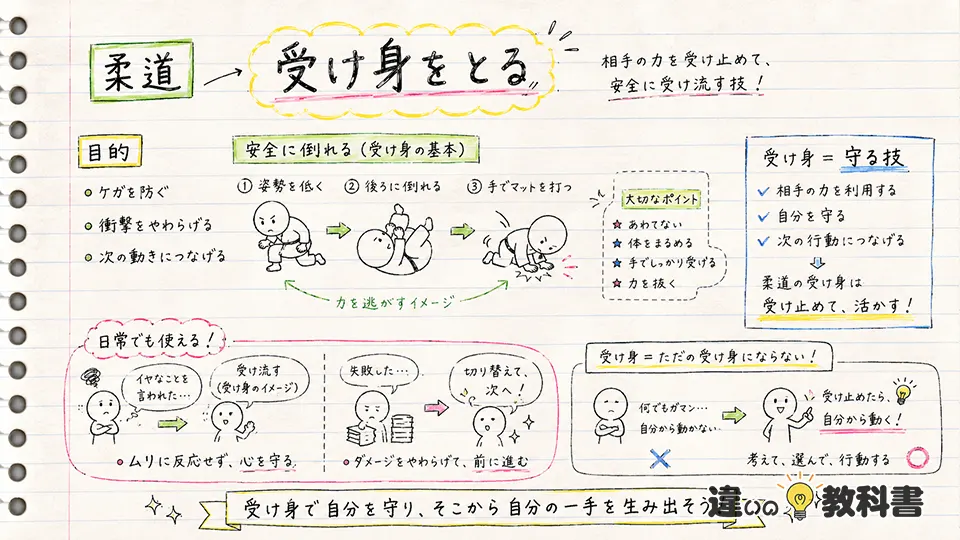 柔道
受け身をとる
相手の力を受け止めて、
安全に受け流す技！
目的
ケガを防ぐ
衝撃をやわらげる
次の動きにつなげる
安全に倒れる（受け身の基本）
① 姿勢を低く
② 後ろに倒れる
③ 手でマットを打つ
力を逃がすイメージ
大切なポイント
★ あわてない
★ 体をまるめる
★ 手でしっかり受ける
★ 力を抜く
受け身 = 守る技
✓ 相手の力を利用する
✓ 自分を守る
✓ 次の行動につなげる
柔道の受け身は
受け止めて、活かす！
日常でも使える！
イヤなことを
言われた…
受け流す
（受け身のイメージ）
ムリに反応せず、心を守る
失敗した…
切り替えて、
次へ！
ダメージをやわらげて、前に進む
受け身 = ただの受け身にならない！
何でもガマン…
自分から動かない
受け止めたら、
自分から動く！
考えて、選んで、行動する
受け身で自分を守り、そこから自分の一手を生み出そう
違いの教科書